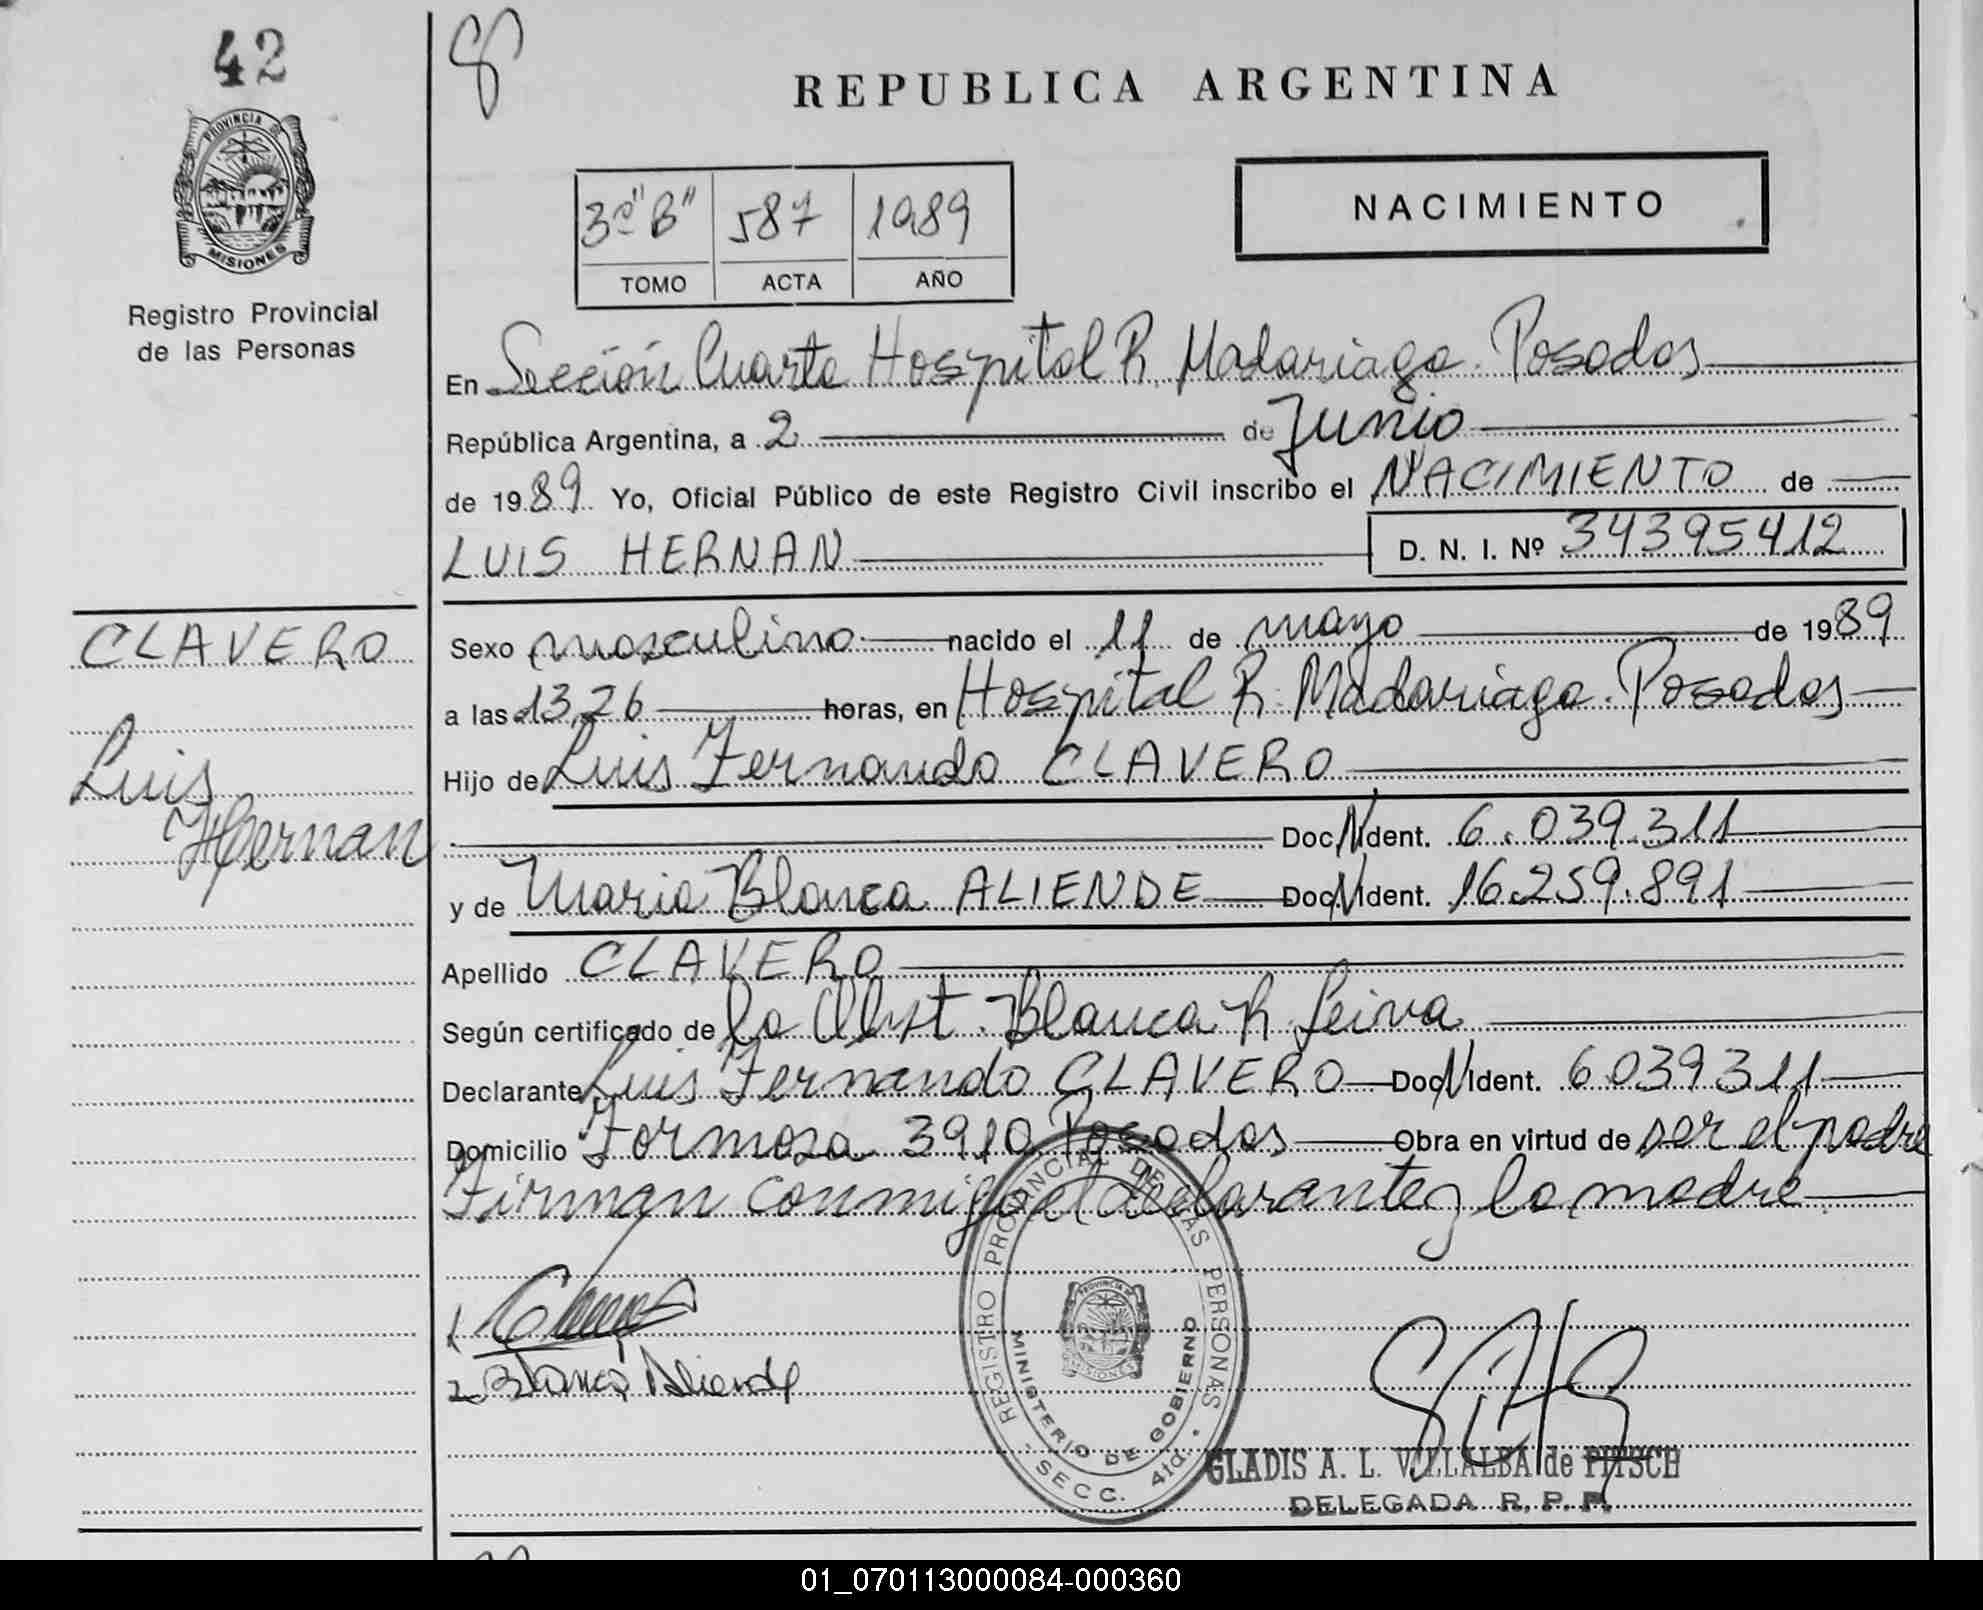 42
8
REPUBLICA ARGENTINA
PROVINCIA DE
MISIONES
Registro Provincial
de las Personas
3º "B" 587 1989
TOMO ACTA AÑO
NACIMIENTO
En Sección Cuarta Hospital R. Madariaga. Posadas
República Argentina, a 2 de Junio
de 1989 Yo, Oficial Público de este Registro Civil inscribo el NACIMIENTO de
LUIS HERNAN D. N. I. Nº 34395412
CLAVERO
Luis
Hernan
Sexo masculino nacido el 11 de mayo de 1989
a las 13,26 horas, en Hospital R. Madariaga. Posadas
Hijo de Luis Fernando CLAVERO
Doc. Ident. 6.039.311
y de Maria Blanca ALIENDE Doc. Ident. 16.259.891
Apellido CLAVERO
Según certificado de la Obst. Blanca R. Leiva
Declarante Luis Fernando CLAVERO Doc. Ident. 6039311
Domicilio Formosa 3910 Posadas Obra en virtud de ser el padre
Firman conmigo el declarante y la madre
1
2 Blanca Aliende
REGISTRO PROVINCIAL DE LAS PERSONAS
MINISTERIO DE GOBIERNO
PROVINCIA DE
MISIONES
SECC. 4ta.
GLADIS A. L. VILLALBA de PITSCH
DELEGADA R. P. P.
01_070113000084-000360